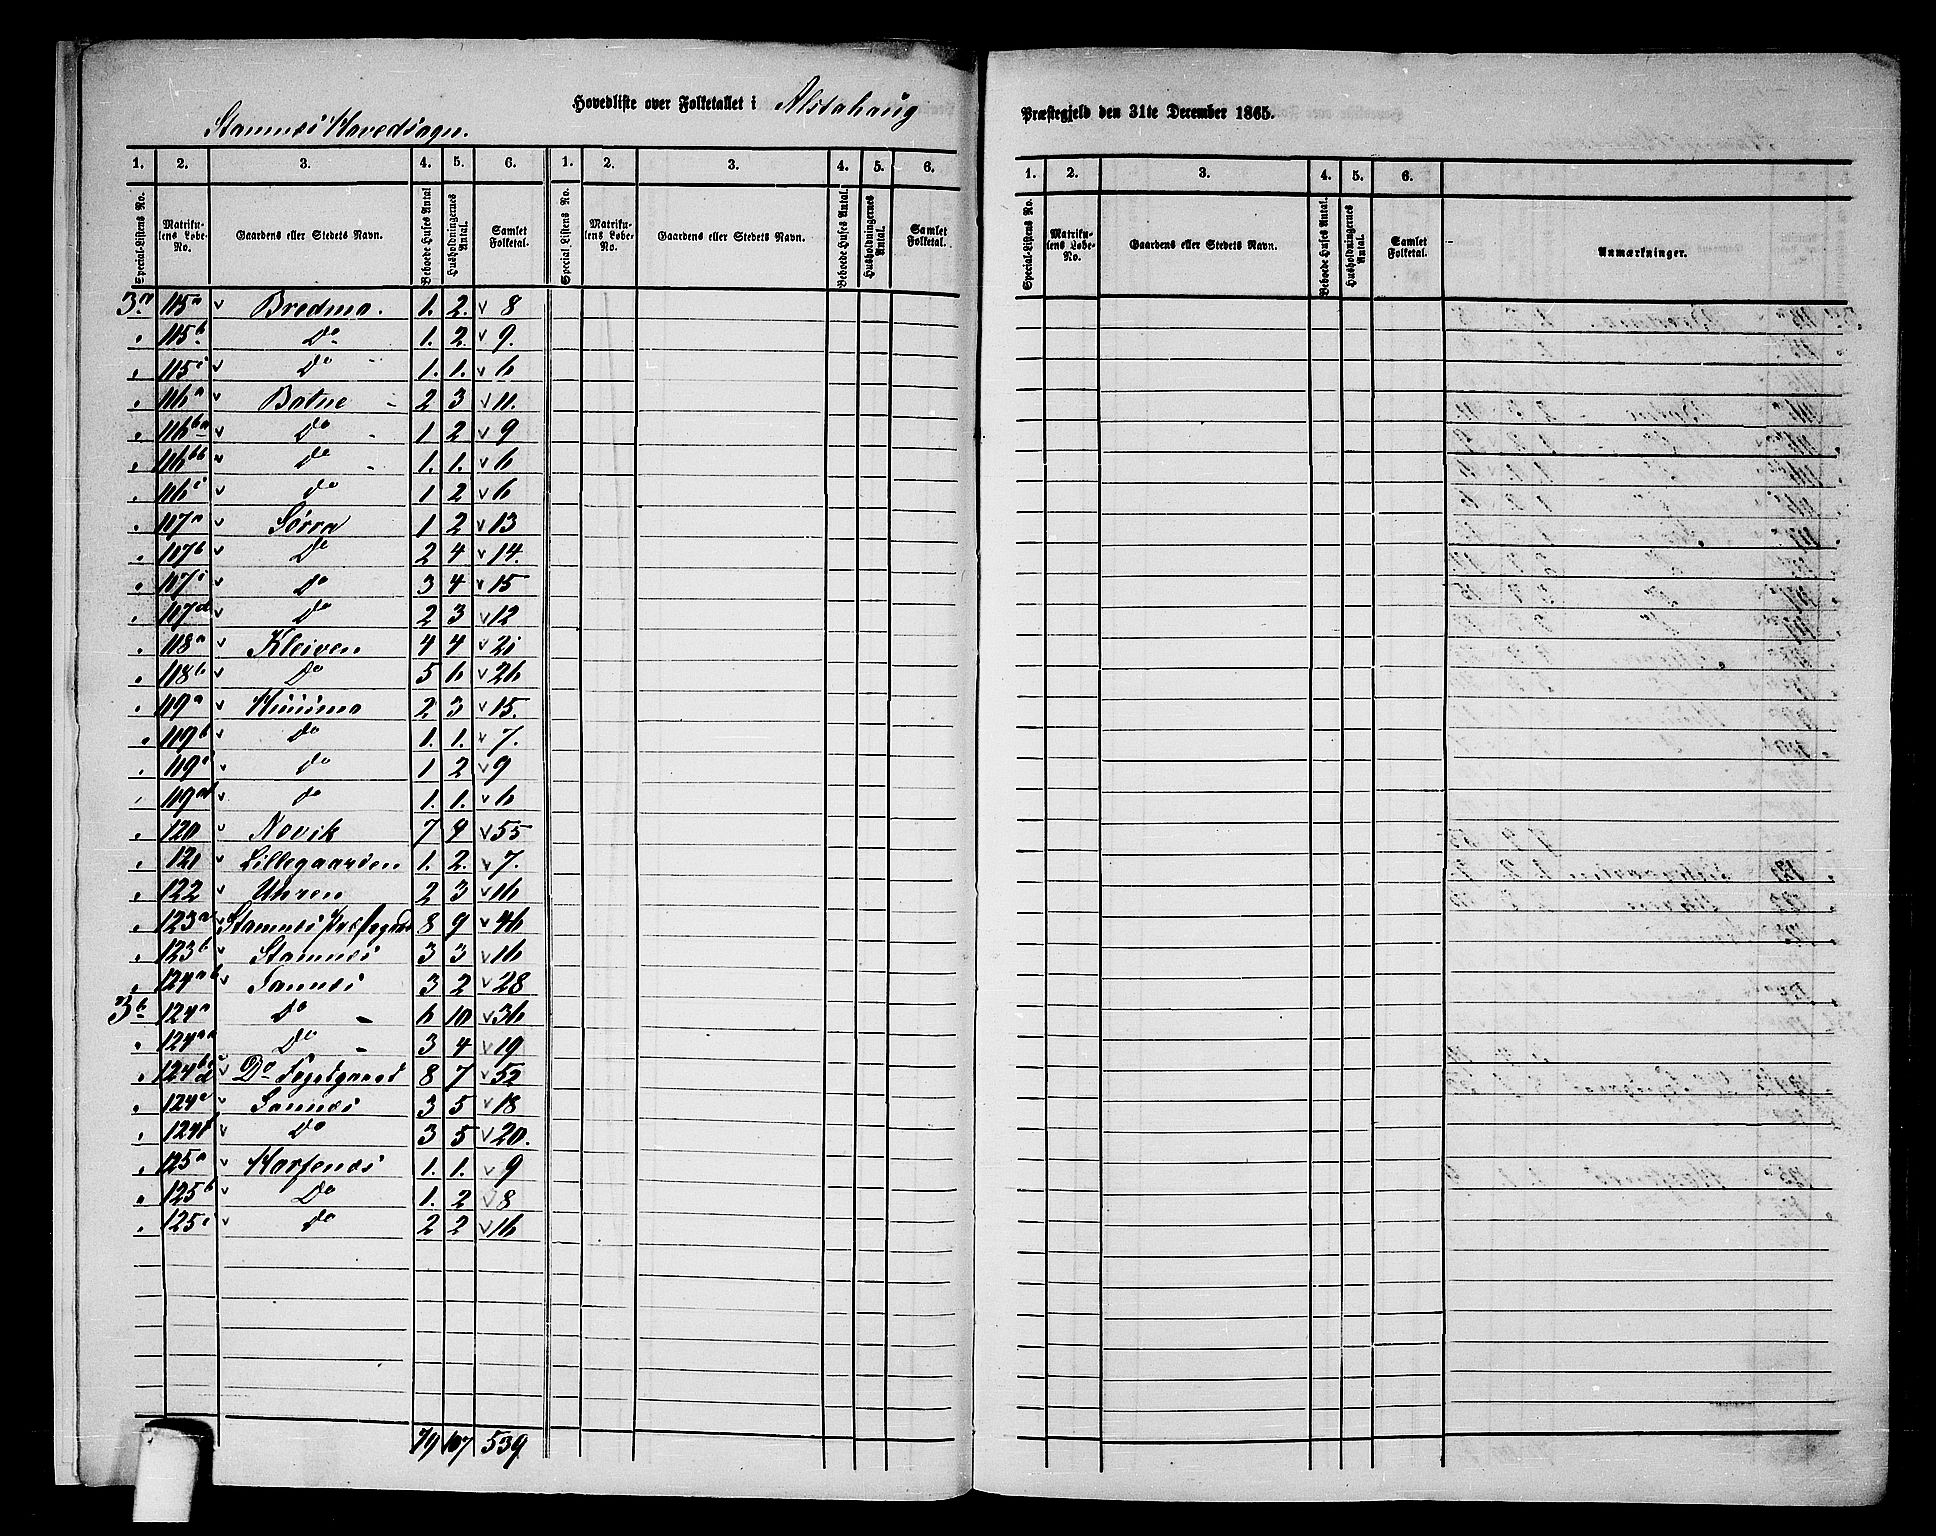 Hovedliste over Folketallet i Alstahaug Præstegjeld den 31te December 1865.
Stamnæs Hovedsogn.
1. 2. 3. 4. 5. 6. 1. 2. 3. 4. 5. 6. 1. 2. 3. 4. 5. 6.
Special-Listens No. Matrikulens Løbe-No. Gaardens eller Stedets Navn. Beboede Huses Antal Husholdningernes Antal. Samlet Folketal. Special-Listens No. Matrikulens Løbe-No. Gaardens eller Stedets Navn. Beboede Huses Antal. Husholdningernes Antal. Samlet Folketal. Special-Listens No. Matrikulens Løbe-No. Gaardens eller Stedets Navn. Beboede Huses Antal. Husholdningernes Antal. Samlet Folketal. Anmærkninger.
3a 115a v Bredmo. 1. 2. v 8
" 115b Do 1. 2. v 9.
" 115c v Do 1. 1. v 6
" 116a v Botne 2 3 v 11.
" 116ba v Do 1 2 v 9
" 116bb v do 1. 1. v 6
" 116c v do 1 2 v 6
" 117a v Sørra 1 2 v 13
" 117b v Do 2 4 v 14.
" 117c v Do 3 4 v 15
" 117d v Do 2 3 v 12
" 118a v Kleiven 4 4 v 21
" 118b v Do 5 6 v 26
" 119a v 2 3 v 15.
" 119b v Do 1. 1. v 7.
" 119c v do 1 2 v 9
" 119d v do 1. 1. v 6
" 120 v Novik 7 9 v 55
" 121 v Lillegaarden 1. 2. v 7.
" 122 v Uhren 2 3 v 16
" 123a v Stamnæs 8 9 v 46
" 123b v Stamnæs 3 3 v 16
" 124ab v Sannæs 3 2 v 28
3b 124a v Do 6 10 v 36
" 124aa Do 3 4 v 19
" 124bcd v Do Fogedgaard 8 7 v 52
" 124e v Sannæs 3 5 v 18
" 124f v Do 3 5 v 20.
" 125a v Horfnæs 1. 1. v 9
" 125b v Do 1. 2 v 8
" 125c v do 2 2 v 16
79 107 539